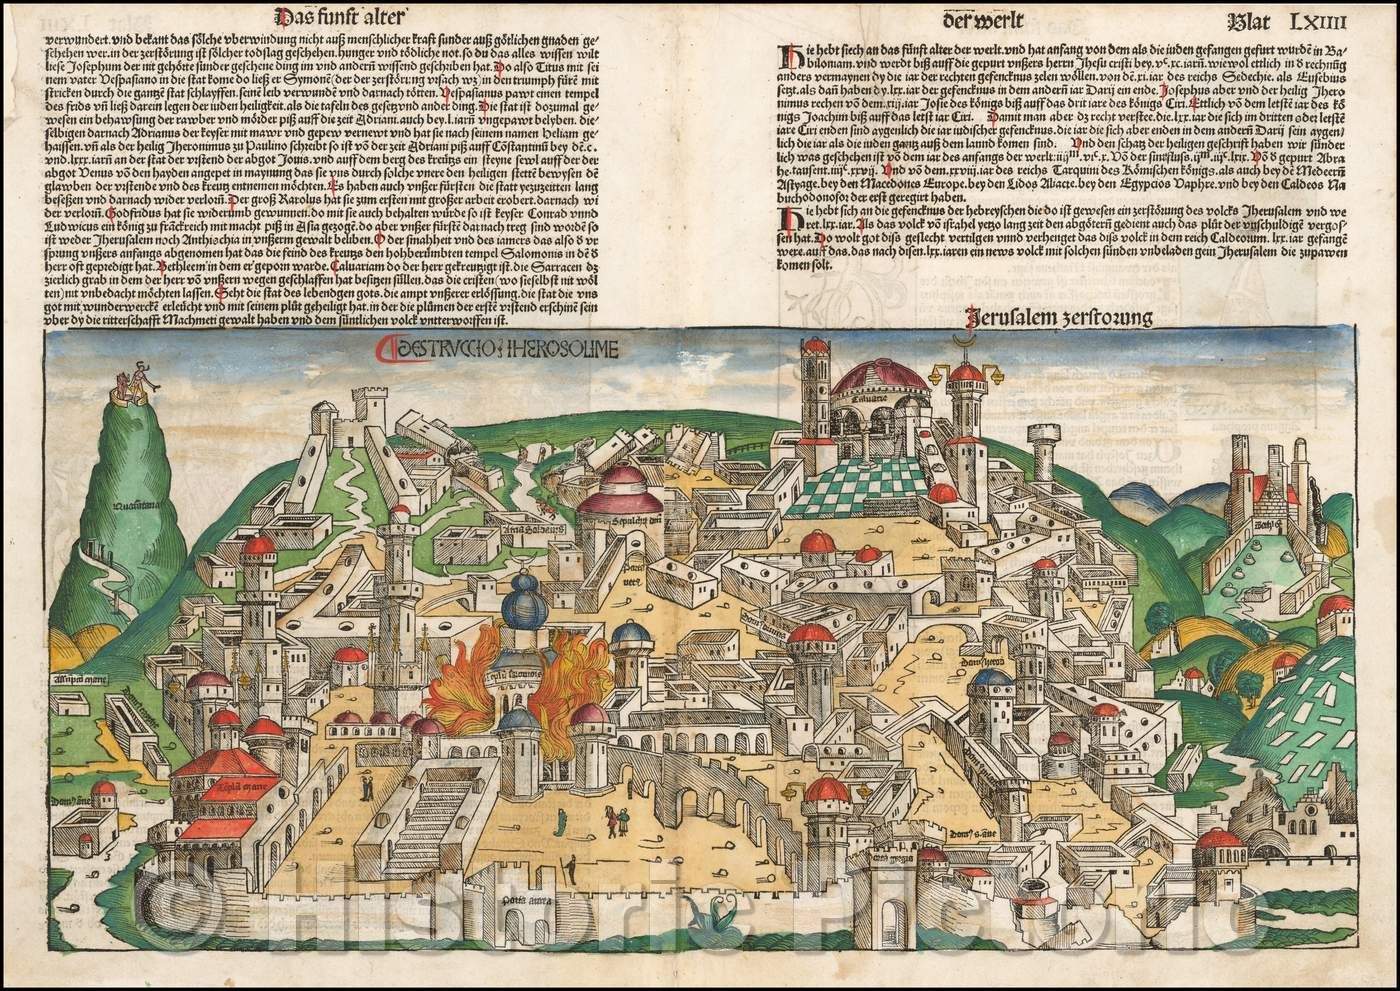 Das funft alter
verwundert. vnd bekant das sölche vberwindung nicht auß menschlicher kraft sunder auß götlichen gnaden ge-
schehen wer. in der zerstörung ist sölcher todslag geschehen. hunger vnd tödliche not. so du das alles wissen wilt
liese Josephum der nit gehötte sunder geschene ding im vnd andern wissend geschriben hat. Do also Titus mit sei
nem vater Vespasiano in die stat kome do ließ er Symonem (der der zerstörung vrsach wz) in den triumph fürē mit
stricken durch die gantzē stat schlayffen. seinē leib verwundē vnd darnach tötten. Vespasianus pawt einen tempel
des frids vnd ließ darein legen der iuden heiligkeit. als die tafeln des gesetz vnd ander ding. Die stat ist dozumal ge-
wesen ein behawsung der rawber vnd mörder piß auff die zeit Adriani. auch bey .l. iarn vngepawt belyben. die
selbigen darnach Adrianus der keyser mit mawr vnd gepew vernewt vnd hat sie nach seinem namen Heliam ge-
haissen. vn als der heilig Jheronimus zu Paulino schreibt so ist vō der zeit Adriani piß auff Costantinū bey dē .c.
vnd .lxxx. iarn an der stat der vrstend der abgot Jouis. vnd auff dem berg des kreutzs ein steyne sewl auff der der
abgot Venus võ den hayden angepet in maynung das sie vns durch solche vnere den heiligen stettē bewysen dē
glawben der vrstende vnd des kreutz entnemen möchten. Es haben auch vnßer fürsten die statt yezuzeitten lang
beseßen vnd darnach wider verlorn. Der groß Karolus hat sie zum ersten mit großer arbeit erobert. darnach wi
der verlorn. Godfridus hat sie widerumb gewunnen. do mit sie auch behalten würde so ist keyser Conrad vnnd
Ludwicus ein könig zu frāckreich mit macht piß in Asia gezogē. do aber vnßer fürstē darnach treg sind wordē so
ist weder Jherusalem noch Anthiochia in vnßerm gewalt beliben. O der smahheit vnd des iamers das also d vr
sprung vnßers anfangs abgenomen hat das die feind des kreutzs den hohberümbten tempel Salomonis in dē d
herr oft gepredigt hat. Bethleem in dem er geporn warde. Caluarium do der herr gekreutzigt ist. die Sarracen dz
zierlich grab in dem der herr vō vnßern wegen geschlaffen hat besitzen süllen. das die cristen (wo sieselbst nit wöl
ten) nit vnbedacht möchten lassen. Seht die stat des lebendgen gots. die ampt vnßerer erlössung. die stat die vns
got mit wunderwerckē erleücht vnd mit seinem plüt geheiligt hat. in der die plümen der erstē vrstend erschinē sein
vber dy die ritterschafft Machmeti gewalt haben vnd dem süntlichen volck vntterworffen ist.
der werlt
Blat LXIIII
Hie hebt sich an das fünft alter der werlt. vnd hat anfang von dem als die iuden gefangen gefurt wurdē in Ba-
biloniam. vnd werdt biß auff die gepurt vnßers herrn Jhesu cristi bey .vᶜ.xc. iarn. wiewol ettlich in d rechnūg
anders vermaynen dy die iar der rechten gefencknus zelen wöllen. von dē .xi. iar des reichs Sedechie. als Eusebius
setzt. als dañ haben dy .lxx. iar der gefencknus in dem andern iar Darij ein ende. Josephus aber vnd der heilig Jhero
nimus rechen vō dem .xiij. iar Josie des königs biß auff das drit iare des königs Ciri. Etlich vō dem letstē iar des kö
nigs Joachim biß auff das letst iar Ciri. Damit man aber dz recht verstee. die .lxx. iar die sich im dritten oder letstē
iare Ciri enden sind aygenlich die iar iudischer gefencknus. die iar die sich aber enden in dem andern Darij sein aygen/
lich die iar als die iuden gantz auß dem lannd komen sind. Vnd den schatz der heiligen geschrift haben wir sünder
lich was geschehen ist vō dem iar des anfangs der werlt
he. tausent. Vnd vō dem .xxviij. iar des reichs Tarquini des Römischen königs. als auch bey dē Medeern
Astyage. bey den Macedones Europe. bey den Lidos Aliacte. bey den Egypcios Vaphre. vnd bey den Caldeos Na
buchodonosor der erst geregirt haben.
Hie hebt sich an die gefencknus der hebreyschen die do ist gewesen ein zerstörung des volcks Jherusalem vnd we
ret .lxx. iar. Als das volck vō israhel yetzo lang zeit den abgöttern gedient auch das plüt der vnschuldigē vergos-
sen hat. Do wolt got diss geslecht vertilgen vnnd verhenget das diss volck in dem reich Caldeorum .lxx. iar gefangē
were. auff das. das nach disen .lxx. iaren ein news volck mit solchen sünden vnbeladen gein Jherusalem die zupawen
komen solt.
Jerusalem zerstorung
DESTRVCCIO IHEROSOLIME
Caluarie
Quarētana
Sepulchr dni
Porta aurea
© Historic Pictoric